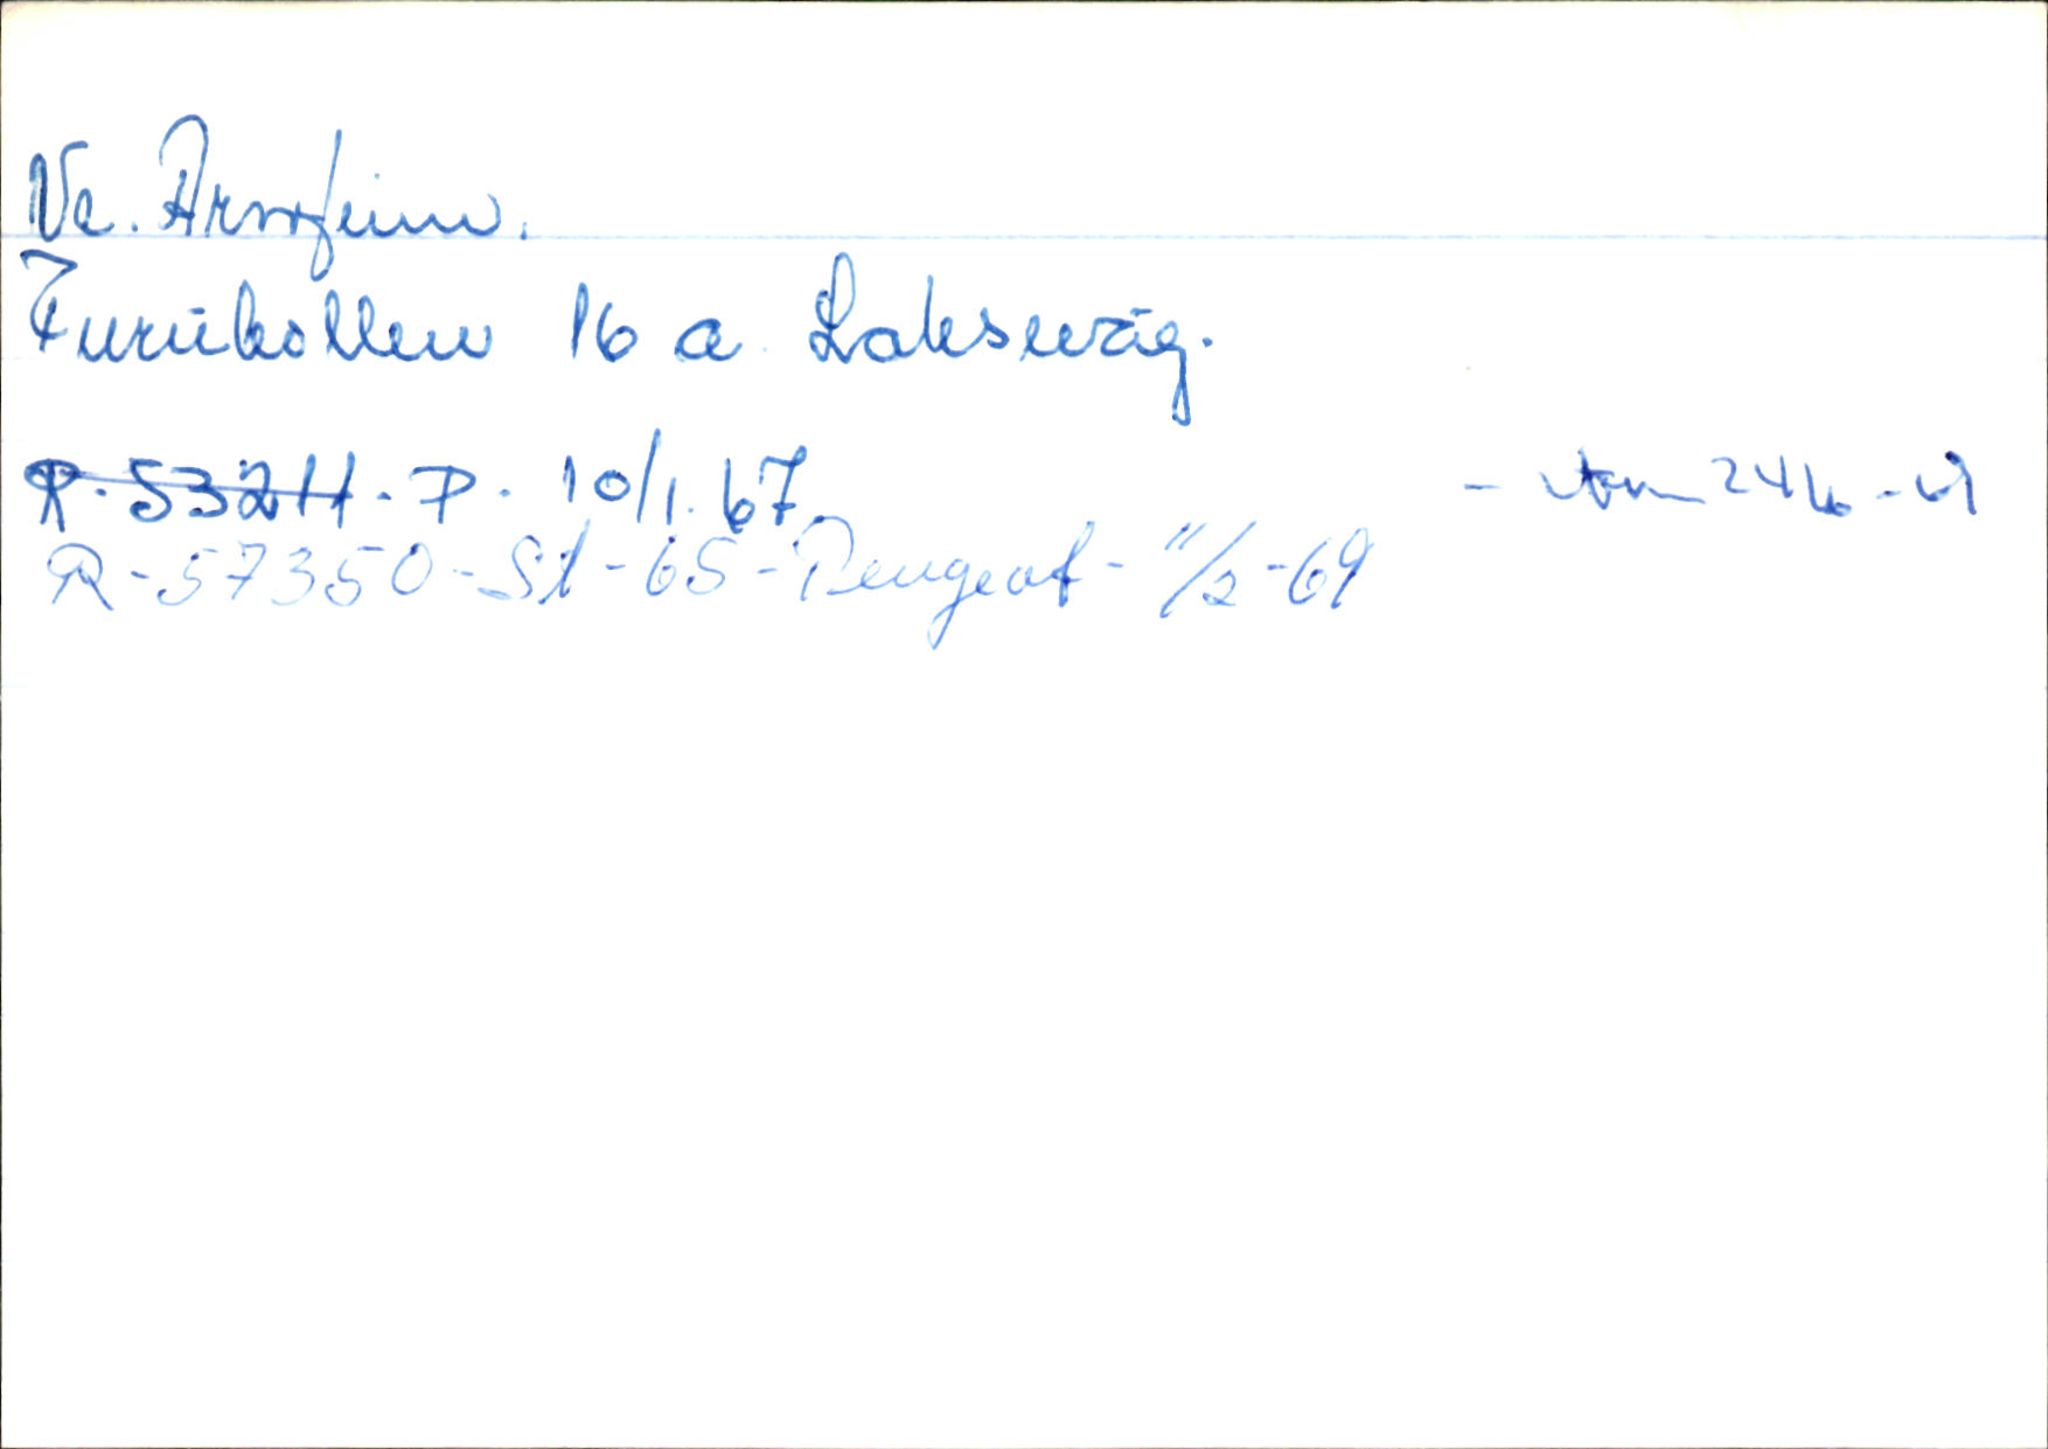 Ve. Arnfinn.
Furukollen 16 a Laksevåg.
R. 53211. P. 10/1. 67. -
R-57350-St-65-Peugeot-11/2-69